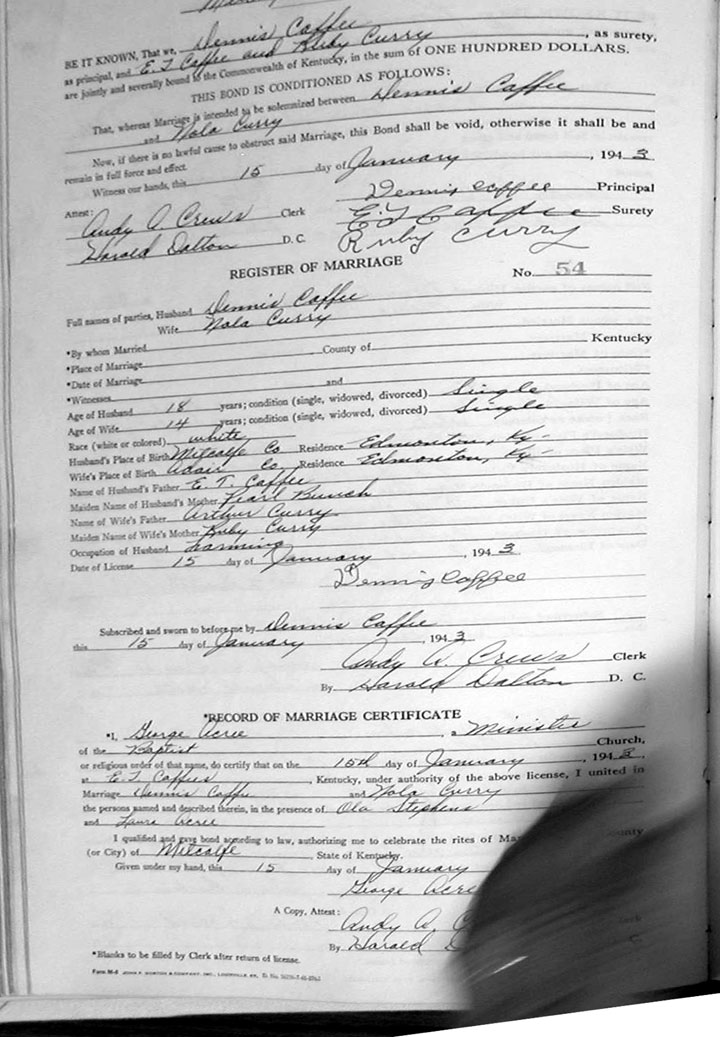 BE IT KNOWN, That we, Dennis Caffee , as surety,
as principal, and E T Caffee and Ruby Curry
are jointly and severally bound to the Commonwealth of Kentucky, in the sum of ONE HUNDRED DOLLARS.
THIS BOND IS CONDITIONED AS FOLLOWS:
That, whereas Marriage is intended to be solemnized between Dennis Caffee
and Nola Curry
Now, if there is no lawful cause to obstruct said Marriage, this Bond shall be void, otherwise it shall be and
remain in full force and effect.
Witness our hands, this 15 day of January , 1943
Dennis Coffee Principal
Attest: Andy A. Crews Clerk E. T Caffee Surety
Harold Dalton D. C. Ruby Curry
REGISTER OF MARRIAGE
No. 54
Full names of parties, Husband Dennis Caffee
Wife Nola Curry
*By whom Married County of Kentucky
*Place of Marriage
*Date of Marriage and
*Witnesses
Age of Husband 18 years; condition (single, widowed, divorced) Single
Age of Wife 14 years; condition (single, widowed, divorced) Single
Race (white or colored) white
Husband's Place of Birth Metcalfe Co Residence Edmonton, Ky-
Wife's Place of Birth Adair Co, Residence Edmonton, Ky-
Name of Husband's Father E. T. Caffee
Maiden Name of Husband's Mother Pearl Bunch
Name of Wife's Father Arthur Curry
Maiden Name of Wife's Mother Ruby Curry
Occupation of Husband Farming
Date of License 15 day of January , 1943
Dennis Coffee
Subscribed and sworn to before me by Dennis Caffee
this 15 day of January , 1943
Andy A. Crews Clerk
By Harold Dalton D. C.
*RECORD OF MARRIAGE CERTIFICATE
*I, George Acree , a Minister
of the Baptist Church,
or religious order of that name, do certify that on the 15th day of January , 1943,
at E. T Caffees , Kentucky, under authority of the above license, I united in
Marriage Dennis Caffee and Nola Curry
the persons named and described therein, in the presence of Ola Stephens
and Laura Acree
I qualified and gave bond according to law, authorizing me to celebrate the rites of County
(or City) of Metcalfe State of Kentucky.
Given under my hand, this 15 day of January
George
A Copy, Attest: Andy A. Clerk
By Harold
*Blanks to be filled by Clerk after return of license.
Form M-4